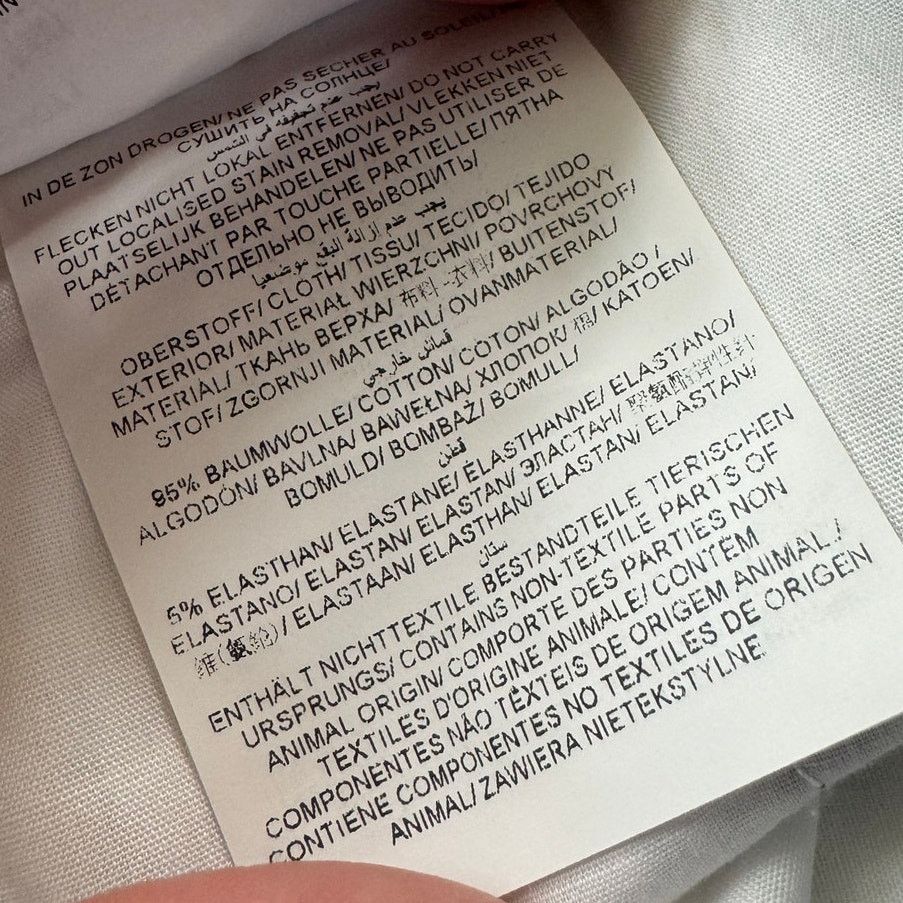 IN DE ZON DROGEN/ NE PAS SECHER AU SOLEIL/
СУШИТЬ НА СОЛНЦЕ/
يجب عدم تجفيفه في الشمس
FLECKEN NICHT LOKAL ENTFERNEN/ DO NOT CARRY
OUT LOCALISED STAIN REMOVAL/ VLEKKEN NIET
PLAATSELIJK BEHANDELEN/ NE PAS UTILISER DE
DÉTACHANT PAR TOUCHE PARTIELLE/ ПЯТНА
ОТДЕЛЬНО НЕ ВЫВОДИТЬ/
يجب عدم ازالة البقع موضعيا
OBERSTOFF/ CLOTH/ TISSU/ TECIDO/ TEJIDO
EXTERIOR/ MATERIAŁ WIERZCHNI/ POVRCHOVÝ
MATERIÁL/ ТКАНЬ ВЕРХА/ 布料 -衣料/ BUITENSTOF/
STOF/ ZGORNJI MATERIAL/ OVANMATERIAL/
قماش خارجي
95% BAUMWOLLE/ COTTON/ COTON/ ALGODÃO /
ALGODÓN/ BAVLNA/ BAWEŁNA/ ХЛОПОК/ 棉/ KATOEN/
BOMULD/ BOMBAŽ/ BOMULL/
قطن
5% ELASTHAN/ ELASTANE/ ÉLASTHANNE/ ELASTANO/
ELASTANO/ ELASTAN/ ELASTAN/ ЭЛАСТАН/ 聚氨酯弹性纤
维(氨纶)/ ELASTAAN/ ELASTHAN/ ELASTAN/ ELASTAN/
ENTHÄLT NICHTTEXTILE BESTANDTEILE TIERISCHEN
URSPRUNGS/ CONTAINS NON-TEXTILE PARTS OF
ANIMAL ORIGIN/ COMPORTE DES PARTIES NON
TEXTILES D'ORIGINE ANIMALE/ CONTÉM
COMPONENTES NÃO TÊXTEIS DE ORIGEM ANIMAL./
CONTIENE COMPONENTES NO TEXTILES DE ORIGEN
ANIMAL/ ZAWIERA NIETEKSTYLNE